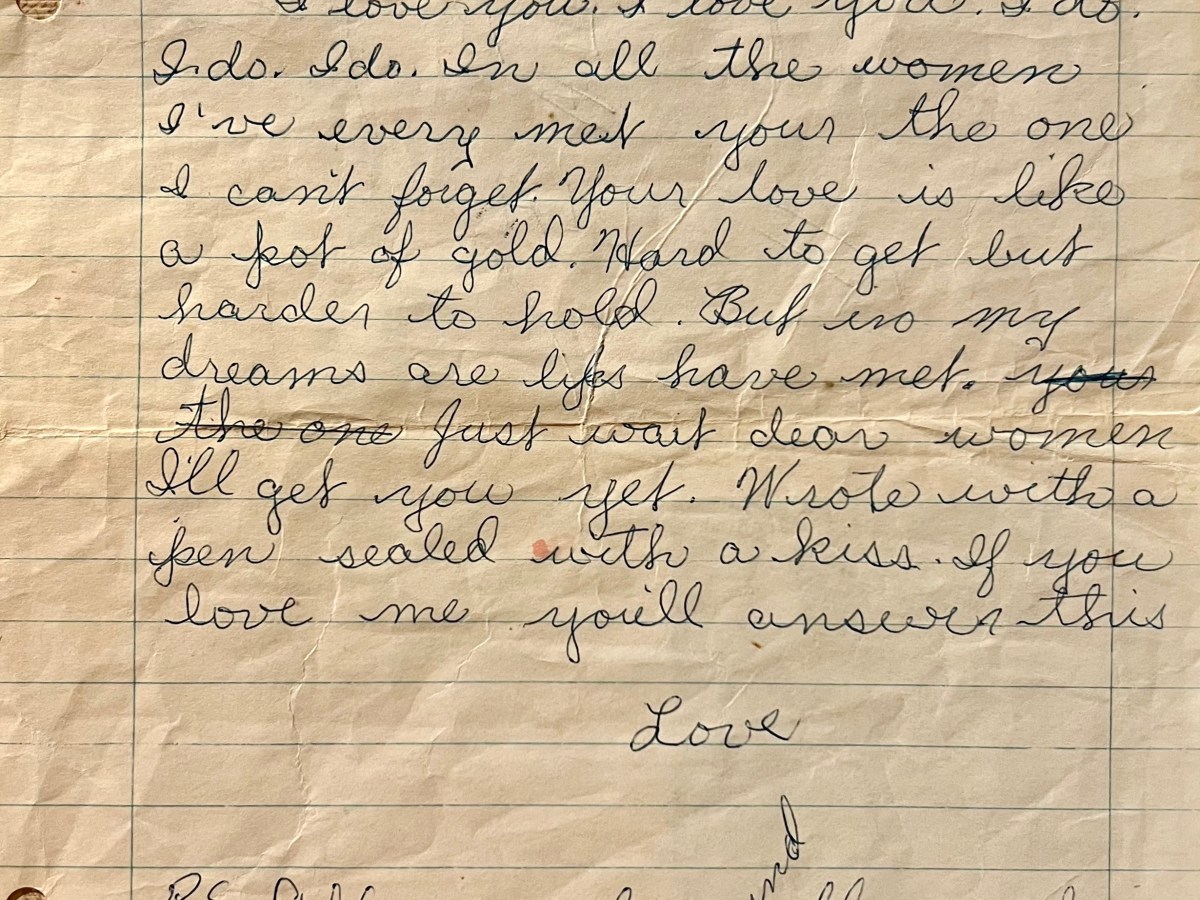 I love you. I love you. I do.
I do. I do. In all the women
I've every met your the one
I can't forget. Your love is like
a pot of gold. Hard to get but
harder to hold. But in my
dreams are lips have met. your
the one Just wait dear women
I'll get you yet. Wrote with a
pen sealed with a kiss. If you
love me you'll answer this
Love